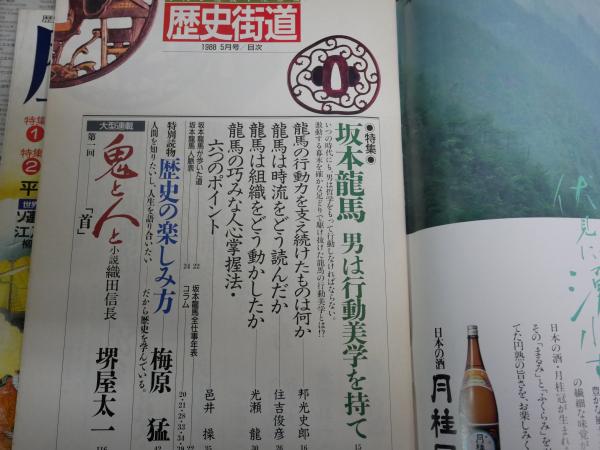 歴史街道
1988 5月号/目次
●特集●
坂本龍馬 男は行動美学を持て 15
いつの時代にも、男は哲学をもって行動しなければならない。
激動する幕末を確かな足どりで駆け抜けた龍馬の行動美学とは!?
龍馬の行動力を支え続けたものは何か 邦光史郎 16
龍馬は時流をどう読んだか 住吉俊彦 26
龍馬は組織をどう動かしたか 光瀬 龍 30
龍馬の巧みな人心掌握法・
六つのポイント 邑井 操 35
坂本龍馬が歩いた道 22
坂本龍馬人脈表 24
坂本龍馬全仕事年表
コラム 20・21・28・33・34
特別読物 歴史の楽しみ方 梅原 猛 42
人間を知りたいし、人生を語り合いたい
だから歴史を学んでいる。
大型連載
鬼と人と 小説 織田信長 堺屋太一 116
第一回 「首」
特集
1
特集
2
平
世界
江
柳
伏見に
日本の酒・月桂冠が生まれ
の繊細な味覚が
その「まるみ」と「ふくらみ」を
てた円熟の旨さを、お楽しみく
日本の酒
月桂
月桂